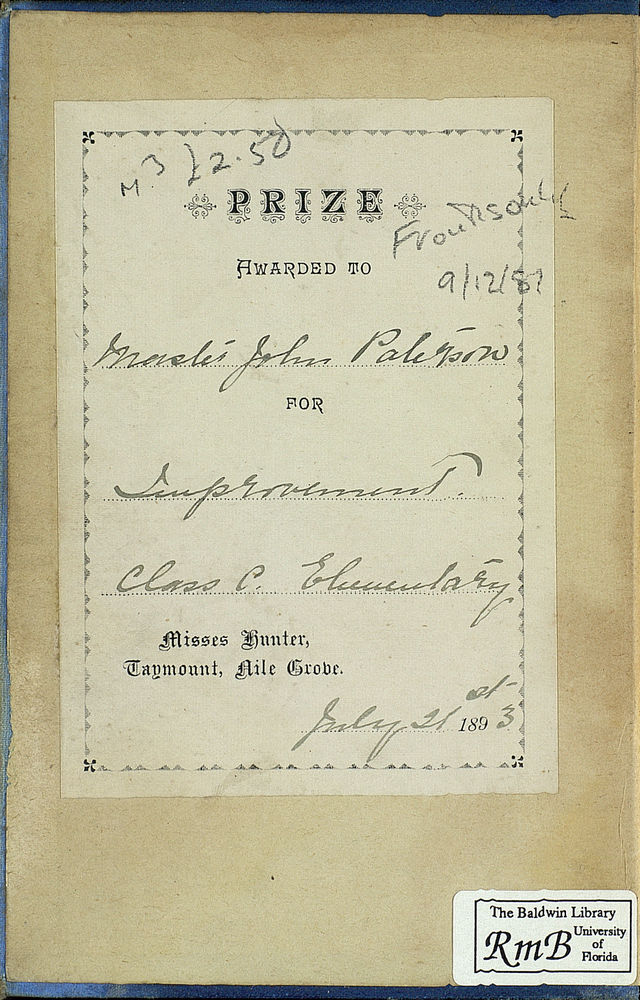 M.3 £2.50
PRIZE
AWARDED TO
9/12/87
Master John Paterson
FOR
Improvement.
Class C. Elementary
Misses Hunter,
Taymount, Nile Grove.
July 21st 1893
The Baldwin Library
RmB University
of
Florida